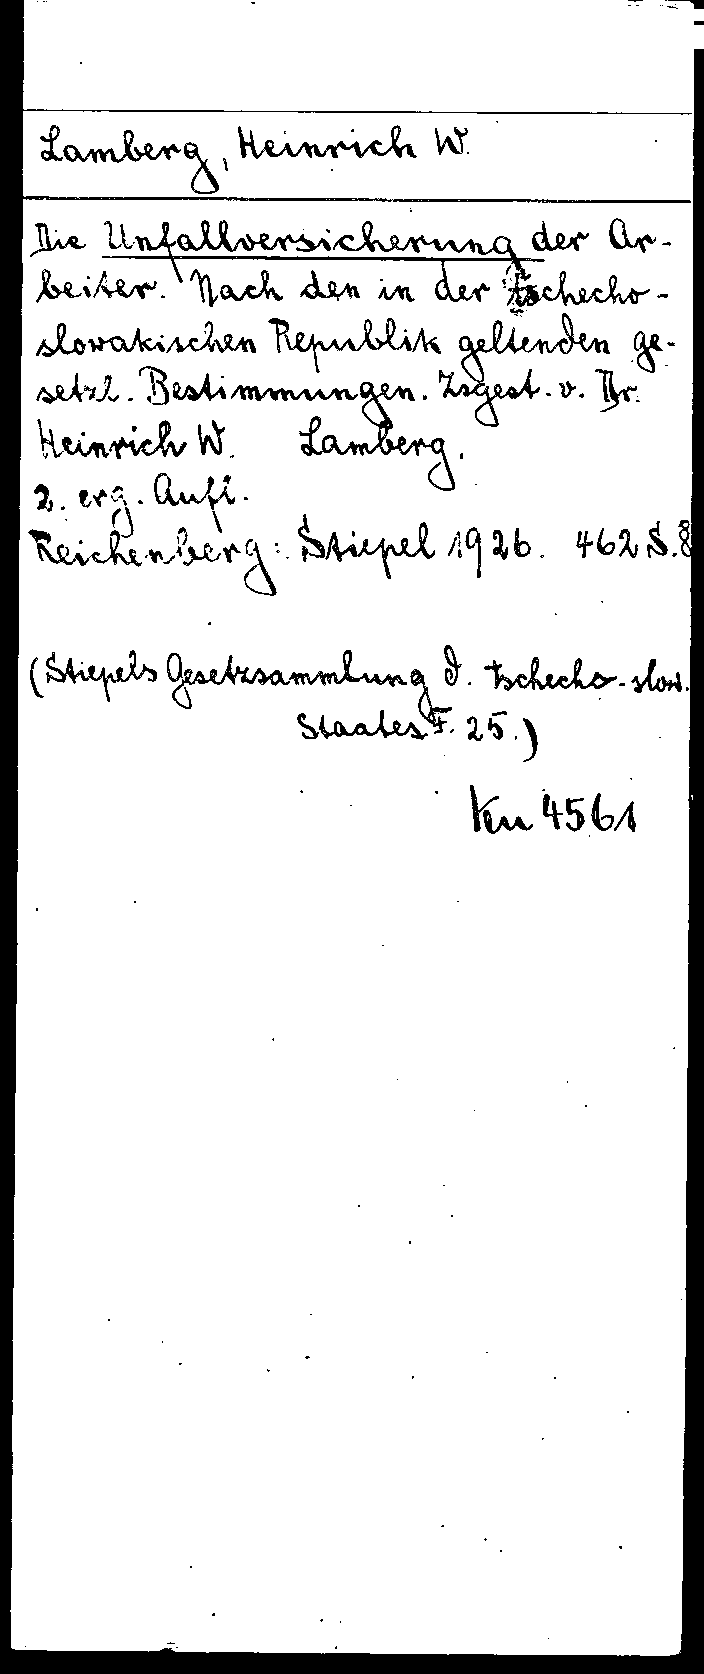 Lamberg, Heinrich W.
Die Unfallversicherung der Ar-
beiter. Nach den in der tschecho-
slowakischen Republik geltenden ge-
setzl. Bestimmungen. Zsgest. v. Dr.
Heinrich W. Lamberg.
2. erg. Aufl.
Reichenberg: Stiepel 1926. 462 S. 8
(Stiepels Gesetzsammlung d. tschecho-slow.
Staates F. 25.)
Kn 4561